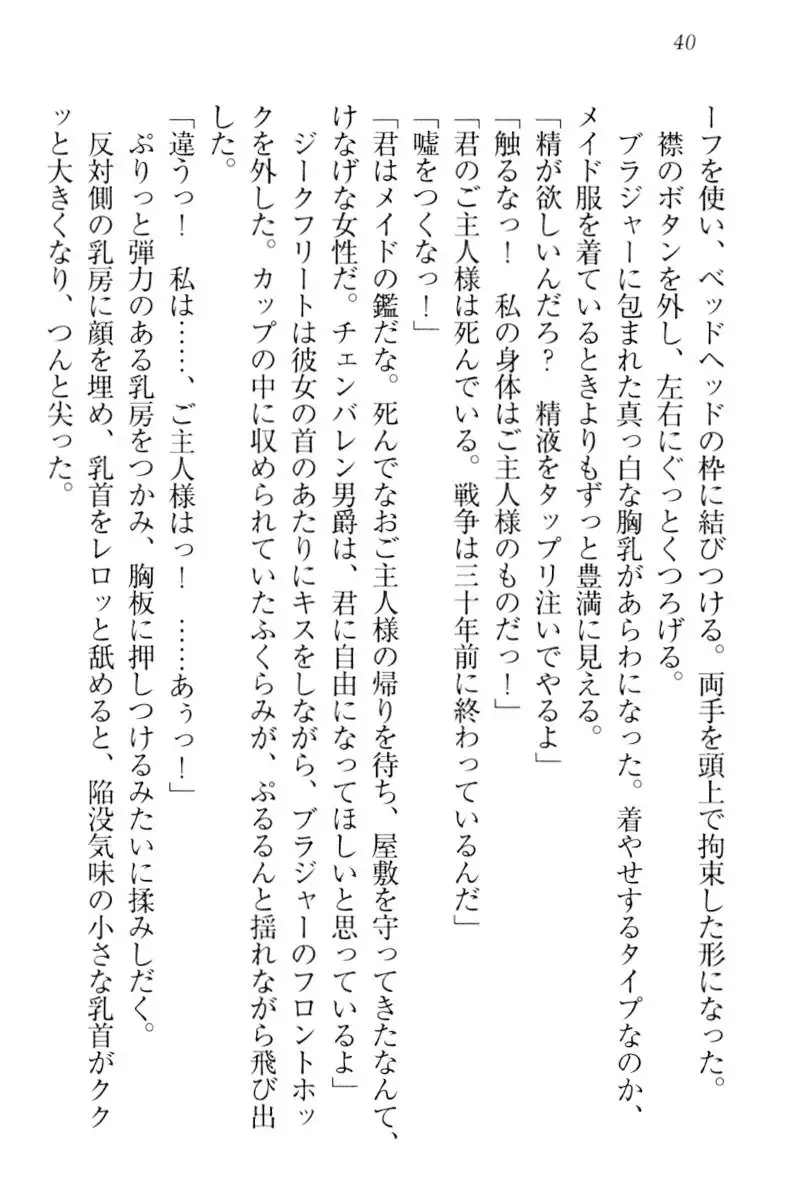 40
ーフを使い、ベッドヘッドの枠に結びつける。両手を頭上で拘束した形になった。
襟のボタンを外し、左右にぐっとくつろげる。
ブラジャーに包まれた真っ白な胸乳があらわになった。着やせするタイプなのか、
メイド服を着ているときよりもずっと豊満に見える。
「精が欲しいんだろ？　精液をタップリ注いでやるよ」
「触るなっ！　私の身体はご主人様のものだっ！」
「君のご主人様は死んでいる。戦争は三十年前に終わっているんだ」
「嘘をつくなっ！」
「君はメイドの鑑だな。死んでなおご主人様の帰りを待ち、屋敷を守ってきたなんて、
けなげな女性だ。チェンバレン男爵は、君に自由になってほしいと思っているよ」
ジークフリートは彼女の首のあたりにキスをしながら、ブラジャーのフロントホッ
クを外した。カップの中に収められていたふくらみが、ぷるるんと揺れながら飛び出
した。
「違うっ！　私は……、ご主人様はっ！　……あぅっ！」
ぷりっと弾力のある乳房をつかみ、胸板に押しつけるみたいに揉みしだく。
反対側の乳房に顔を埋め、乳首をレロッと舐めると、陥没気味の小さな乳首がクク
ッと大きくなり、つんと尖った。